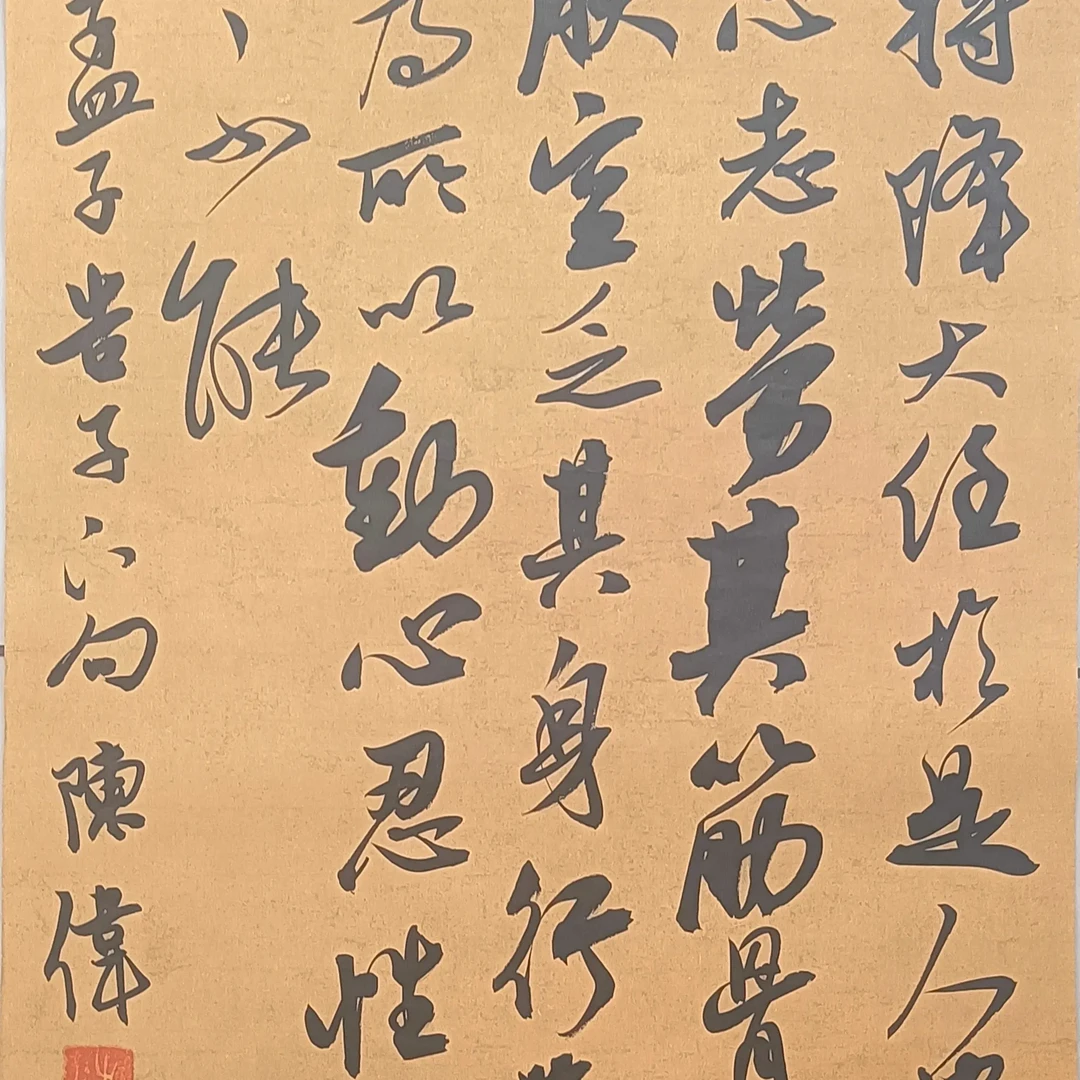 将降大任於是人
心志勞其筋骨
肤空乏其身行
為所以動心忍性
不能
孟子告子下句 陳偉